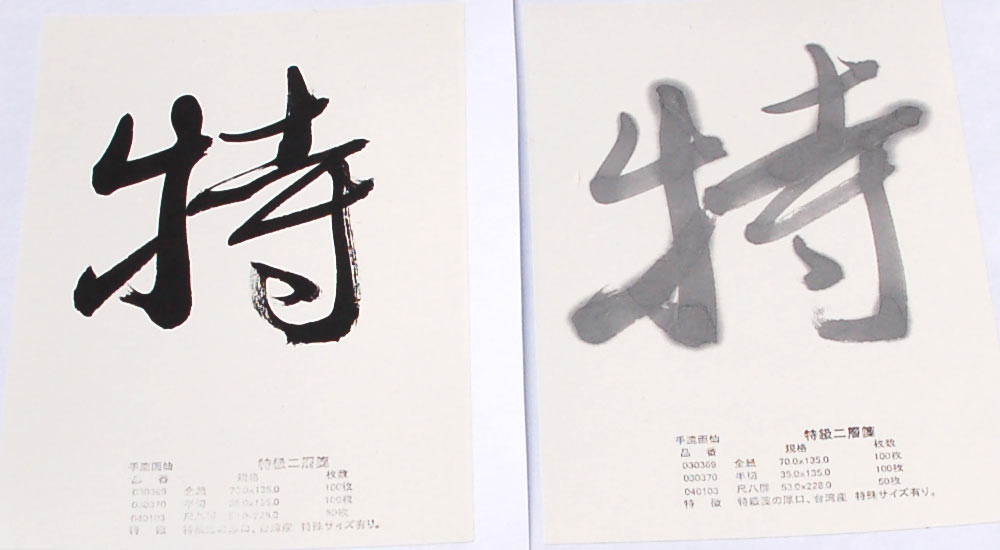 特
手漉画仙 特級二層箋
品番 規格 枚数
030369 全紙 70.0x135.0 100枚
030370 半切 35.0x135.0 100枚
040103 尺八屏 53.0x228.0 50枚
特徴 特級箋の厚口、台湾産 特殊サイズ有り。
特
手漉画仙 特級二層箋
品番 規格 枚数
030369 全紙 70.0x135.0 100枚
030370 半切 35.0x135.0 100枚
040103 尺八屏 53.0x228.0 50枚
特徴 特級箋の厚口、台湾産 特殊サイズ有り。